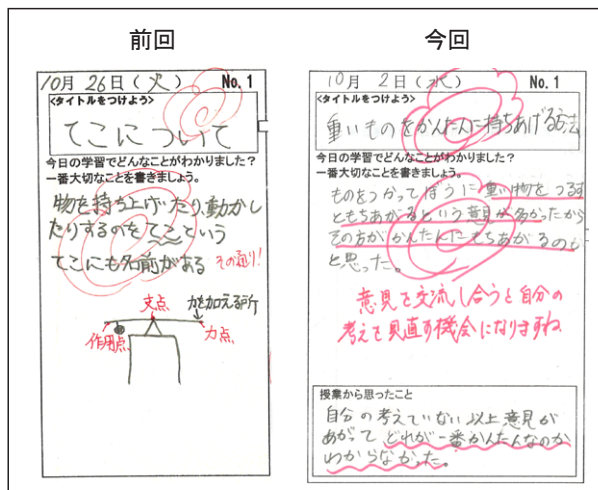 前回
今回
10月 26日(火) No.1
<タイトルをつけよう>
てこについて
今日の学習でどんなことがわかりました?
一番大切なことを書きましょう。
物を持ち上げたり、動かし
たりするのをてこという
てこにも名前がある
その通り!
支点
力を加える所
作用点
力点
10月 2日(水) No.1
<タイトルをつけよう>
重いものをかんたんに持ちあげる方法
今日の学習でどんなことがわかりました?
一番大切なことを書きましょう。
ものをつかってぼうに重い物をつるす
ともちあがるという意見が多かったから
その方がかんたんにもちあがるのか
と思った。
意見を交流し合うと自分の
考えを見直す機会になりますね
授業から思ったこと
自分の考えていない以上意見が
あがって どれが一番かんたんなのか
わからなかった。